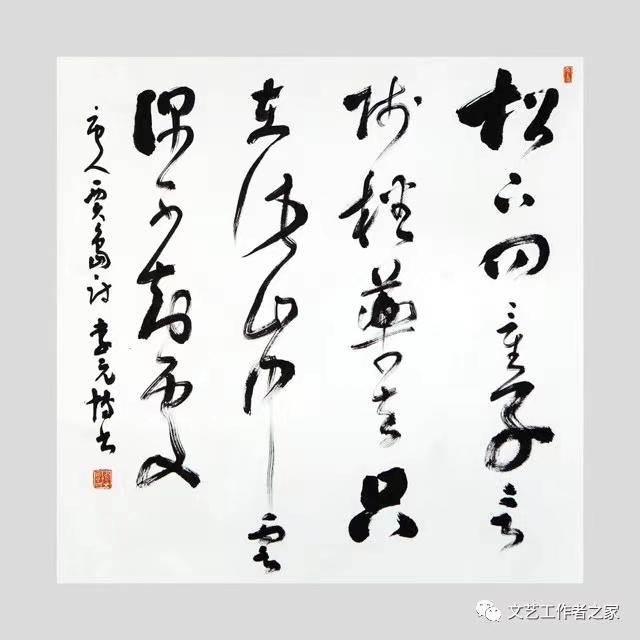 松下问童子言
师採藥去只
在此山中雲
深不知處
唐人贾岛诗 李元博书
文艺工作者之家